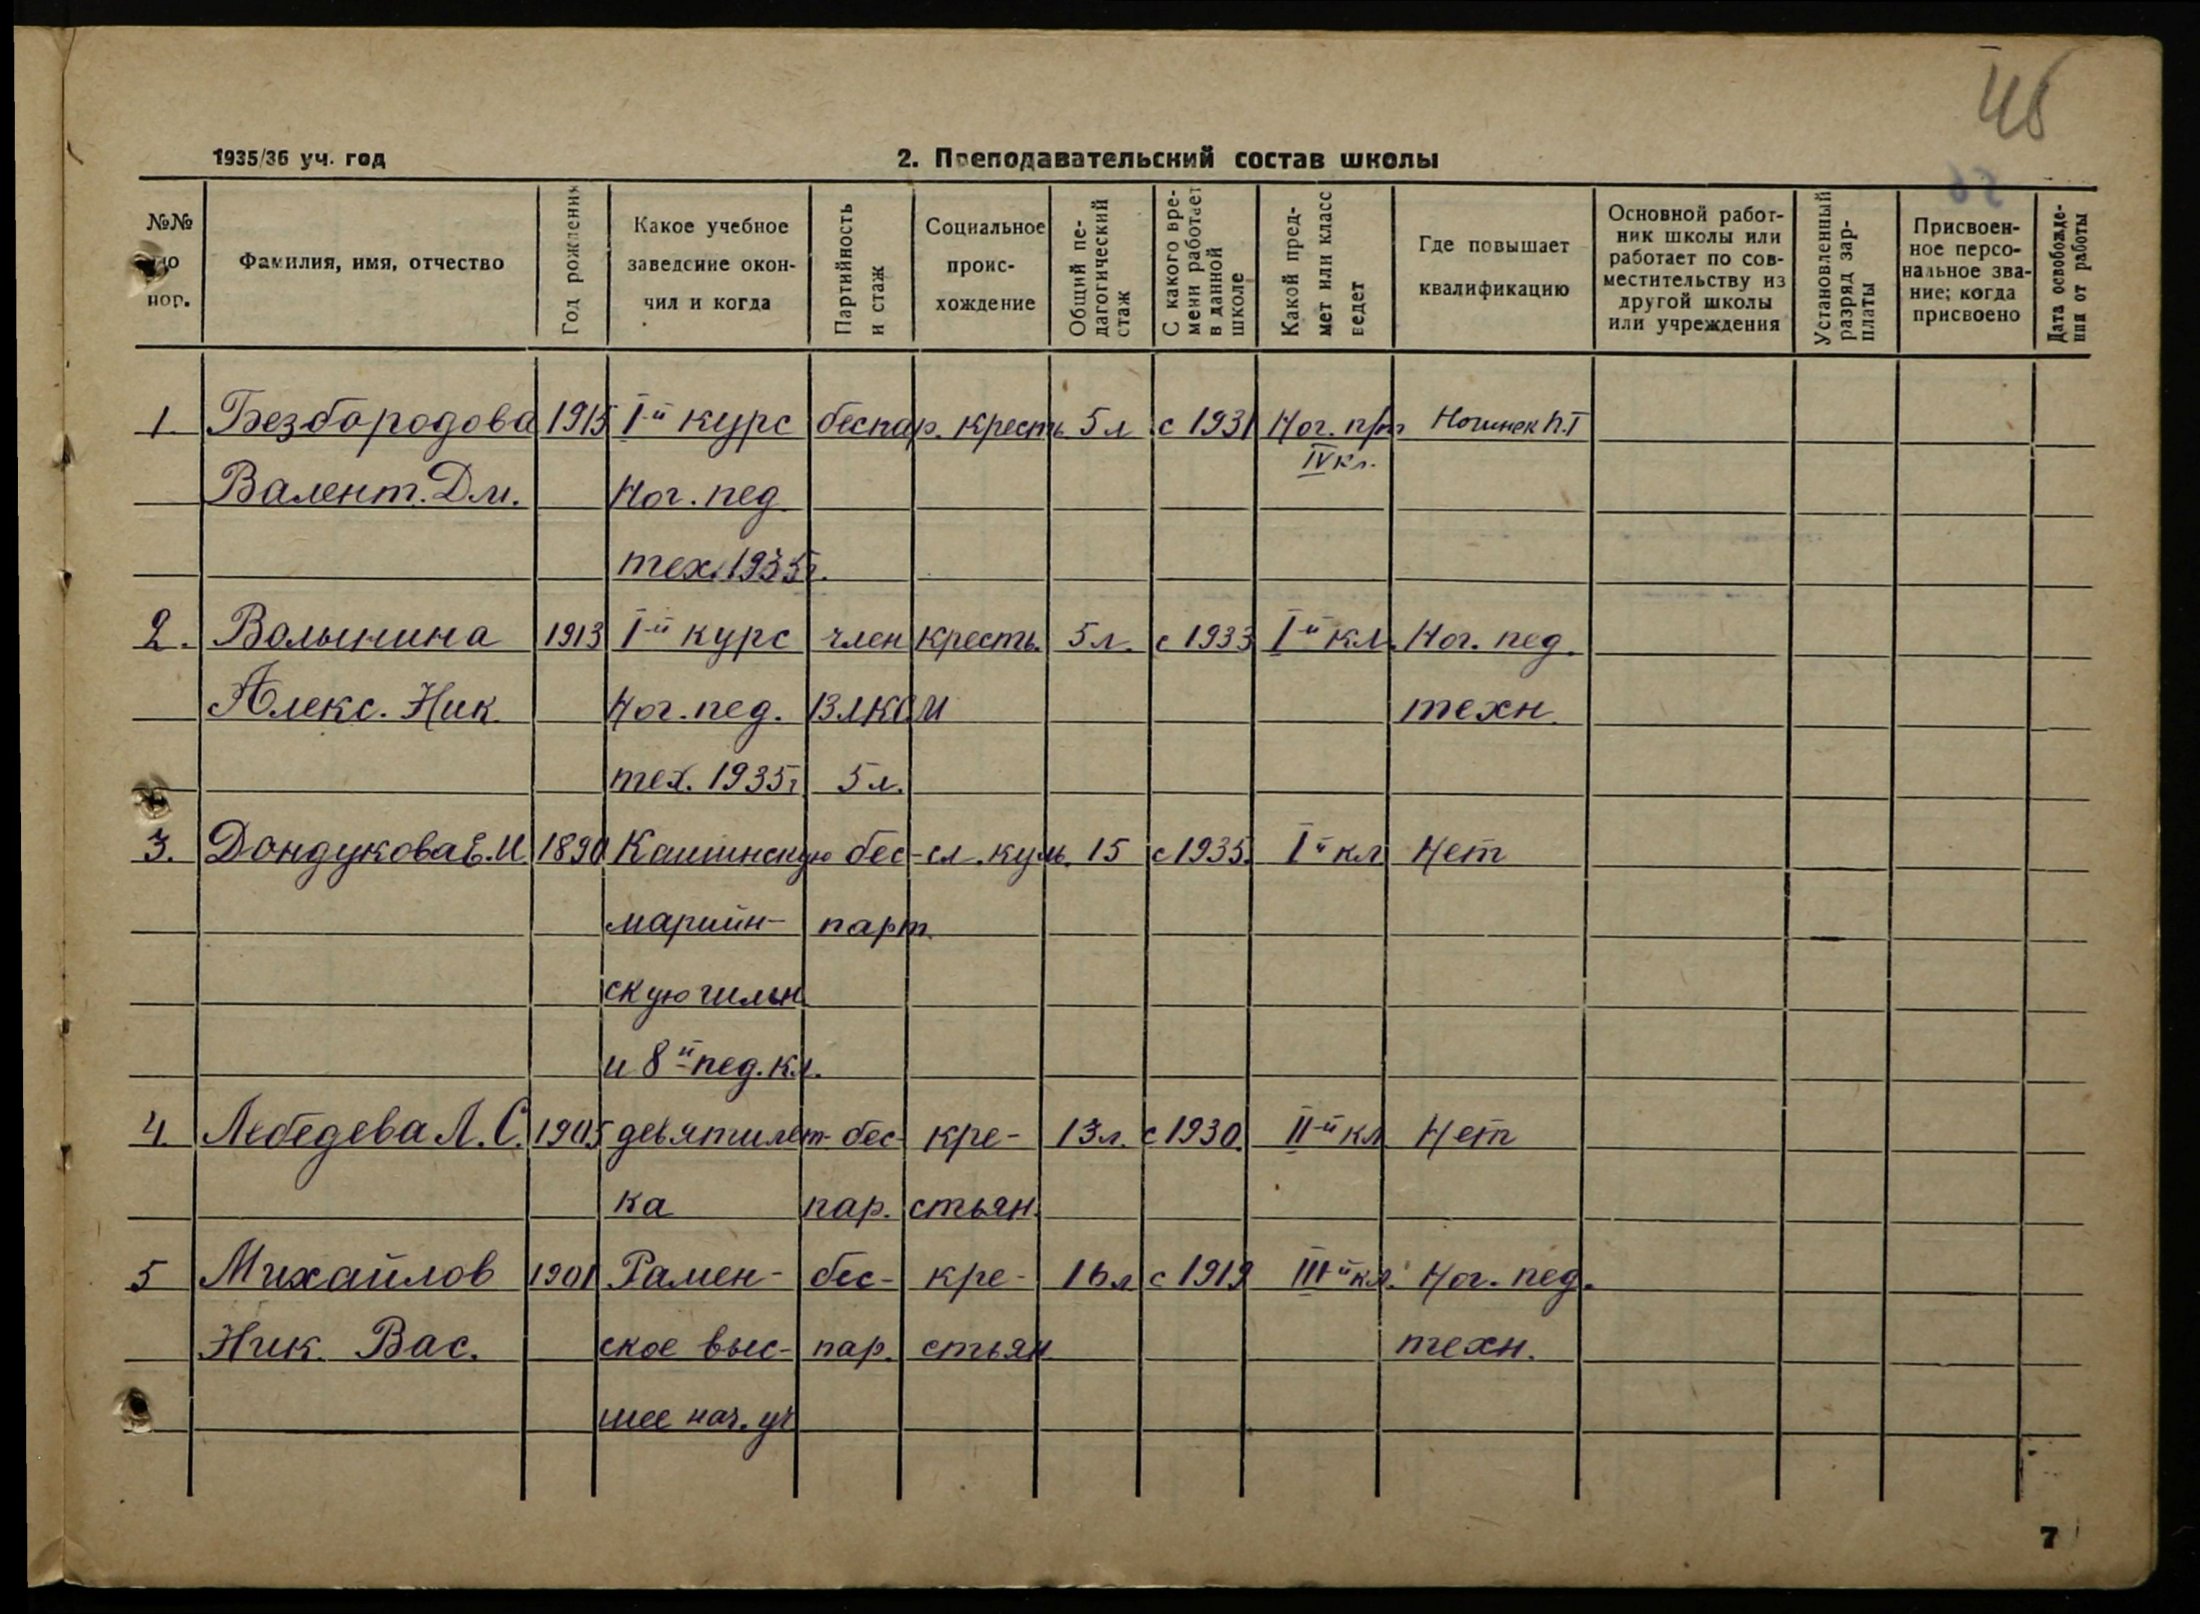 46
1935/36 уч. год 2. Преподавательский состав школы
№№ по пор.
Фамилия, имя, отчество
Год рождения
Какое учебное заведение окончил и когда
Партийность и стаж
Социальное происхождение
Общий педагогический стаж
С какого времени работает в данной школе
Какой предмет или класс ведет
Где повышает квалификацию
Основной работник школы или работает по совместительству из другой школы или учреждения
Установленный разряд зарплаты
Присвоенное персональное звание; когда присвоено
Дата освобождения от работы
1. Безбородова 1915 I-й курс беспар. кресть 5 л с 1931 Ног. п/т
IV кл.
Валент. Дм. Ног. пед.
тех. 1935г.
2. Волынина 1913 I-й курс член кресть. 5 л. с 1933 I-й кл. Ног. пед.
Алекс. Ник. Ног. пед. ВЛКСМ техн.
тех. 1935г 5 л.
3. Дондукова Е.И. 1890 Кашинскую бес- сл. куль. 15 с 1935. I й кл Нет
мариин- парт.
скую
и 8 й пед. кл.
4. Лебедева Л. С. 1905 девятилет- бес- кре- 13 л. с 1930. II-й кл Нет
ка пар. стьян.
5 Михайлов 1901 Рамен- бес- кре- 16 л с 1919 III-й кл. Ног. пед.
Ник. Вас. ское выс- пар. стьян техн.
шее нач. уч
7